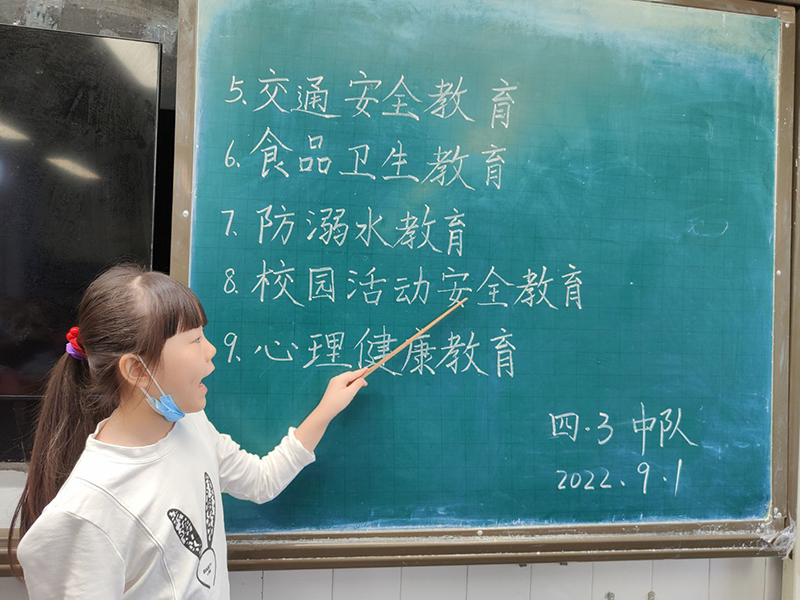 5.交通安全教育
6.食品卫生教育
7.防溺水教育
8.校园活动安全教育
9.心理健康教育
四·3中队
2022.9.1